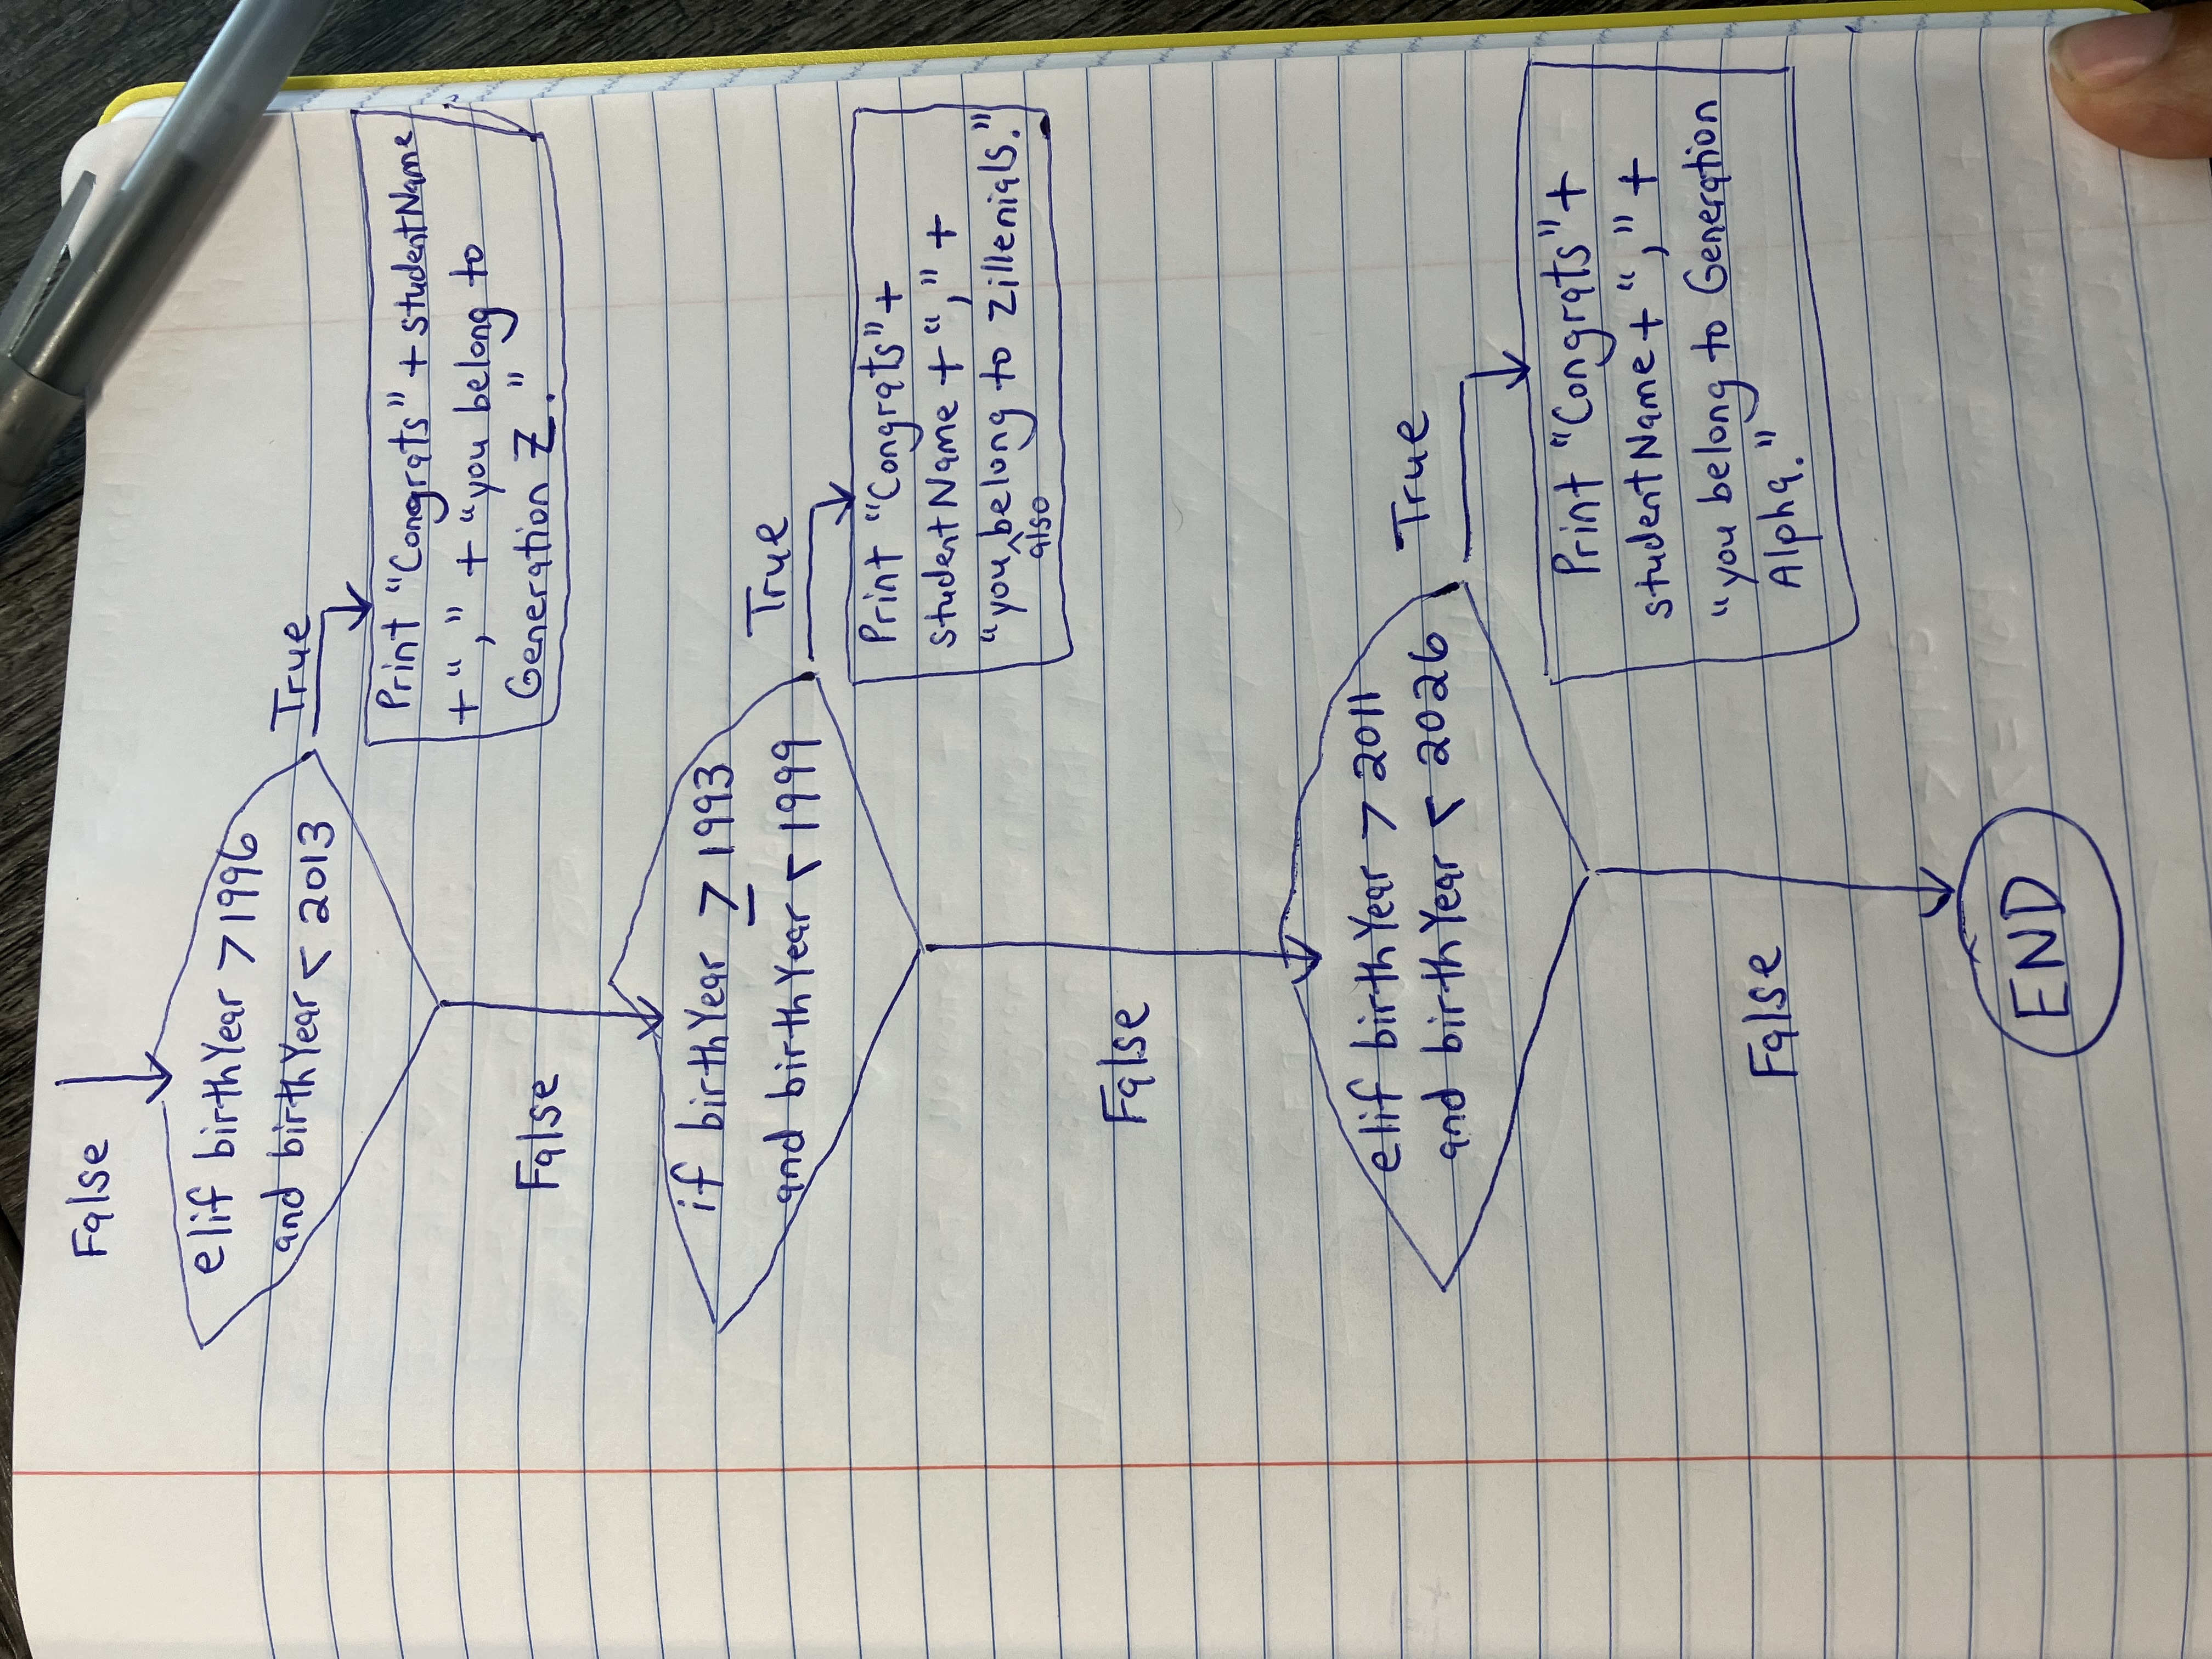 False
elif birthYear > 1996
and birthYear < 2013
True
Print "Congrats" + studentName
+ "," + "you belong to
Generation Z."
False
if birthYear ≥ 1993
and birthYear < 1999
True
Print "Congrats" +
studentName + "," +
"you belong to Zillenials."
also
False
elif birthYear > 2011
and birthYear < 2026
True
Print "Congrats" +
studentName + "," +
"you belong to Generation
Alpha."
False
END